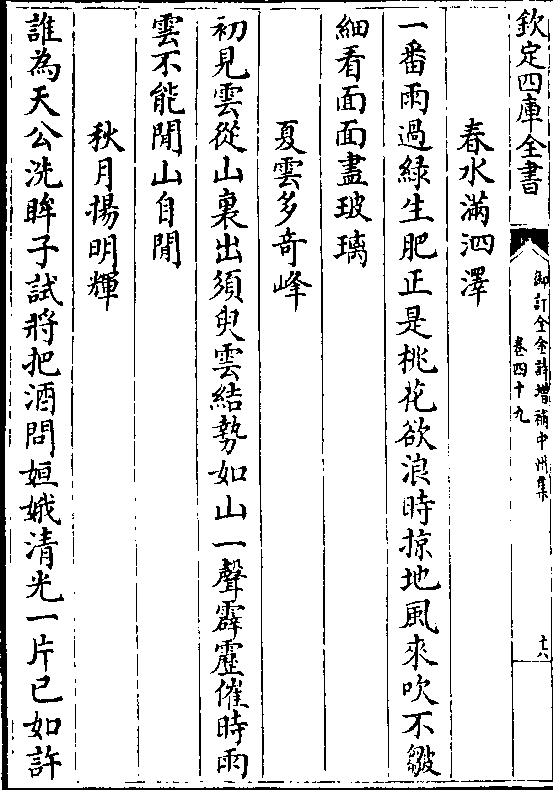 欽定四庫全書
御訂全金詩增補中州集
卷四十九
十六
春水滿泗澤
一番雨過綠生肥正是桃花欲浪時掠地風來吹不皺
細看面面盡玻璃
夏雲多奇峰
初見雲從山裏出須臾雲結勢如山一聲霹靂催時雨
雲不能閒山自閒
秋月揚明輝
誰為天公洗眸子試將把酒問姮娥清光一片已如許